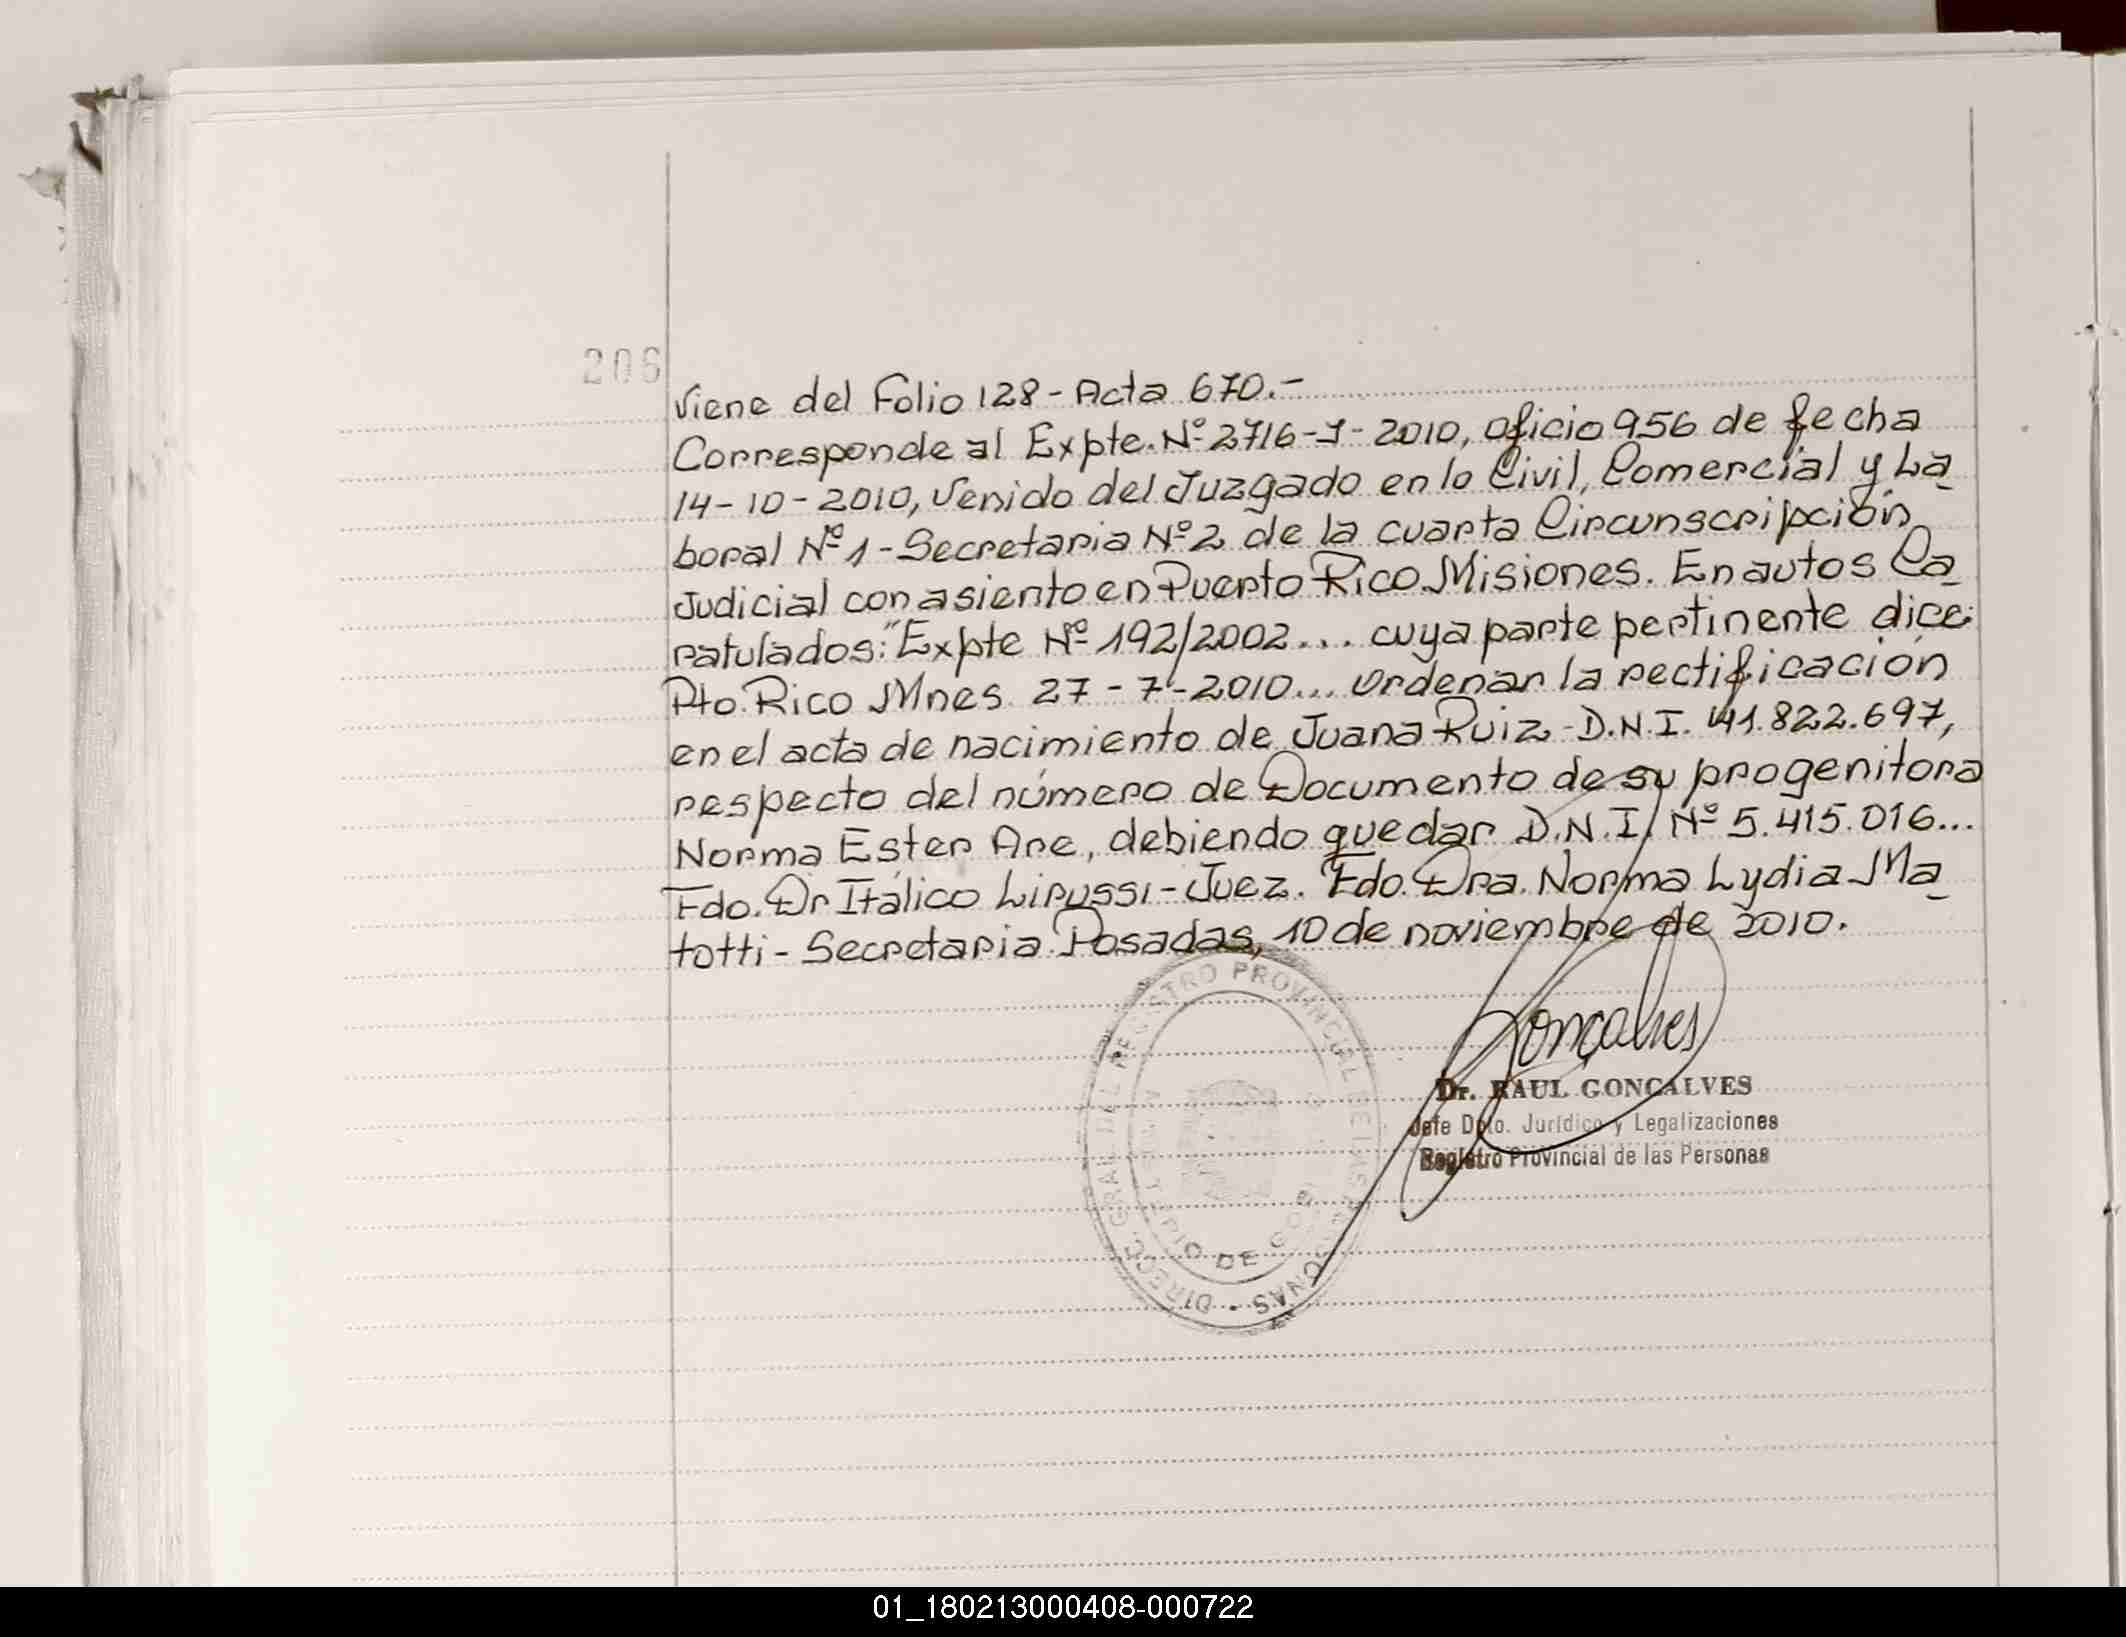 206
Viene del Folio 128 - Acta 670.-
Corresponde al Expte. Nº 2716-J-2010, oficio 956 de fecha
14-10-2010, Venido del Juzgado en lo Civil, Comercial y La_
boral Nº 1 - Secretaria Nº 2 de la cuarta Circunscripción
Judicial con asiento en Puerto Rico Misiones. En autos Ca_
ratulados: "Expte Nº 192/2002... cuya parte pertinente dice:
Pto. Rico Mnes 27-7-2010... ordenar la rectificación
en el acta de nacimiento de Juana Ruiz - D.N.I. 41.822.697,
respecto del número de Documento de su progenitora
Norma Ester Are, debiendo quedar D.N.I. Nº 5.415.016...
Fdo. Dr Itálico Lirussi - Juez. Fdo. Dra. Norma Lydia Ma_
totti - Secretaria. Posadas, 10 de noviembre de 2010.
Goncalves
Dr. RAUL GONCALVES
Jefe Dpto. Jurídico y Legalizaciones
Registro Provincial de las Personas
DIRECC. GRAL. DEL REGISTRO PROVINCIAL DE LAS PERSONAS
01_180213000408-000722